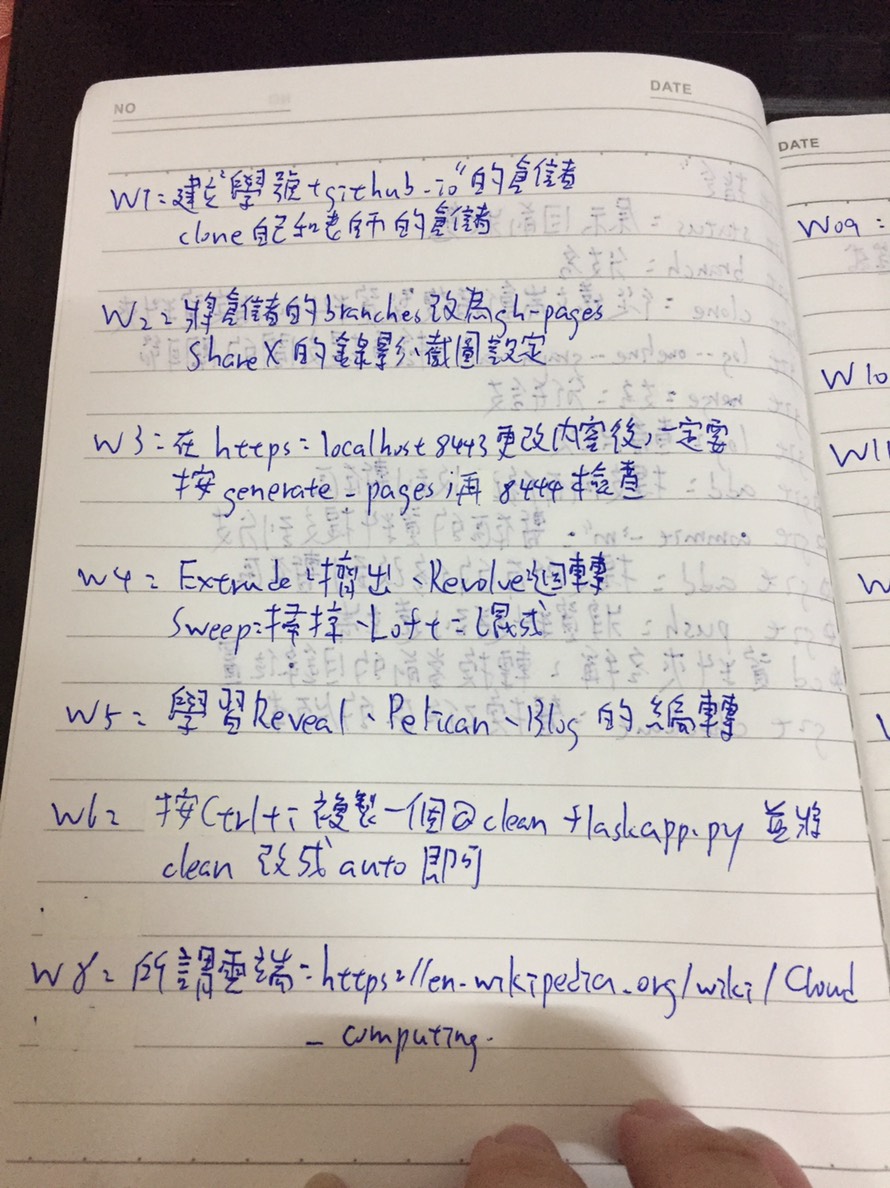 NO
DATE
W1:建立"學號+github.io"的倉儲者
clone自己和老師的倉儲
W2:將倉儲的branches改為gh-pages
ShareX的錄影、截圖設定
W3:在https:localhost 8443更改內容後,一定要
按generate_pages,再8444檢查
W4:Extrude:擠出、Revolve:迴轉
Sweep:掃掠、Loft:混成
W5:學習Reveal、Pelican、Blog的編輯
W6:按Ctrl+i複製一個@clean flaskapp.py並將
clean改成auto即可
W8:所謂雲端:https://en.wikipedia.org/wiki/Cloud
_computing.
DATE
W09:
W10
W11
W
W